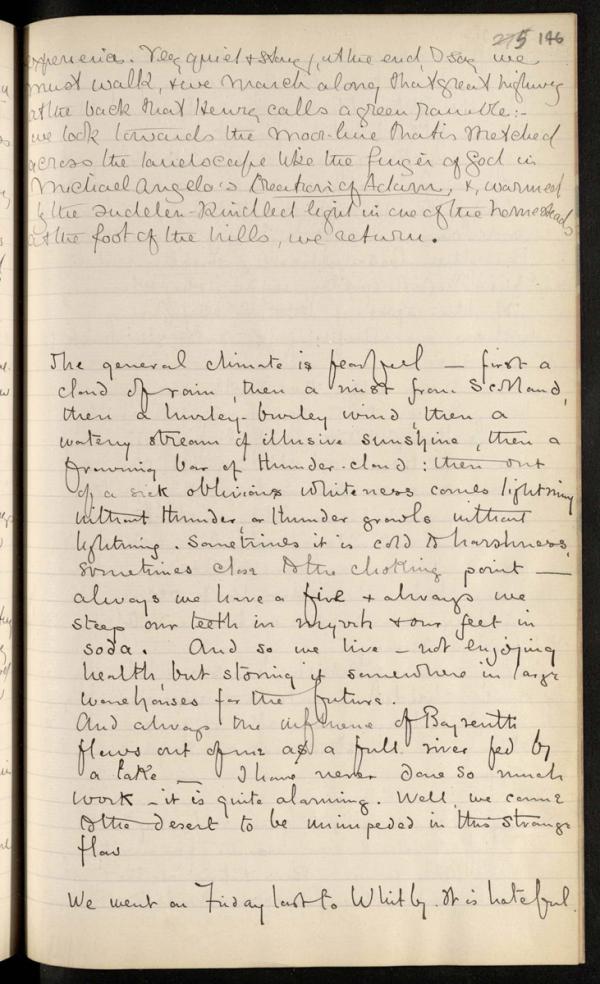 275 146
experience. Very quiet & stary, at the end, I say we
must walk, & we march along that great highway
at the back that Henry calls a green ramble:-
we look towards the moor-line that is stretched
across the landscape like the finger of God in
Michael Angelo's Creation of Adam, &, warmed
by the sudden-kindled light in one of the homesteads
at the foot of the hills, we return.
The general climate is fearful — first a
cloud of rain, then a mist from Scotland,
then a hurley-burley wind, then a
watery stream of illusive sunshine, then a
frowning bar of thunder-cloud: then out
of a sick oblivious whiteness comes lightning
without thunder, or thunder growls without
lightning. Sometimes it is cold to harshness,
sometimes close to the choking point —
always we have a fire & always we
steep our teeth in myrrh & our feet in
soda. And so we live — not enjoying
health, but storing it somewhere in large
warehouses for the future.
And always the influence of Bayreuth
flows out of me as a full river fed by
a lake — I have never done so much
work — it is quite alarming. Well, we came
to the desert to be unimpeded in this strange
flow
We went on Friday last to Whitby. It is hateful.